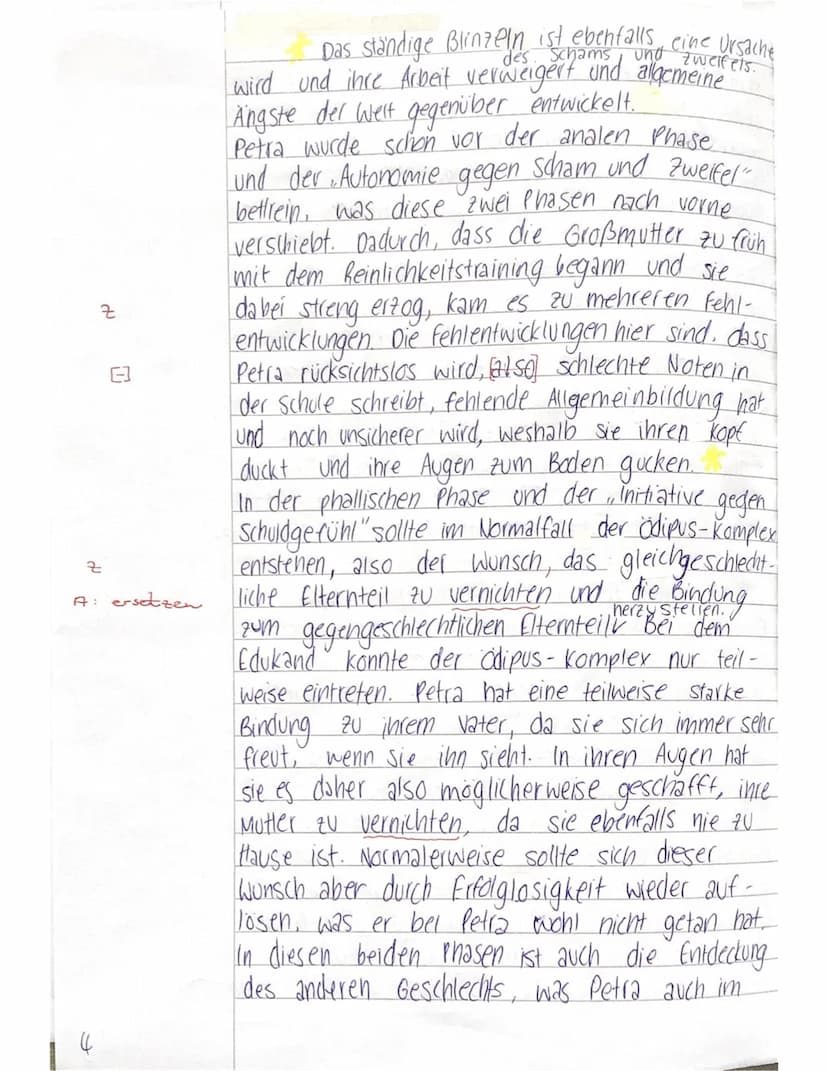 Das ständige Blinzeln ist ebenfalls eine Ursache
des Schams und Zweifels.
wird und ihre Arbeit verweigert und allgemeine
Ängste der Welt gegenüber entwickelt.
Petra wurde schon vor der analen Phase
und der „Autonomie gegen Scham und Zweifel"
betlrein, was diese zwei Phasen nach vorne
verschiebt. Dadurch, dass die Großmutter zu früh
mit dem Reinlichkeitstraining begann und sie
z dabei streng erzog, kam es zu mehreren Fehl-
entwicklungen. Die Fehlentwicklungen hier sind, dass
[-] Petra rücksichtslos wird, [also] schlechte Noten in
der Schule schreibt, fehlende Allgemeinbildung hat
und noch unsicherer wird, weshalb sie ihren Kopf
duckt und ihre Augen zum Boden gucken.
In der phallischen Phase und der „Initiative gegen
Schuldgefühl" sollte im Normalfall der Ödipus-Komplex
z entstehen, also der Wunsch, das gleichgeschlecht-
A: ersetzen liche Elternteil zu vernichten und die Bindung
herzustellen.
zum gegengeschlechtlichen Elternteil Bei dem
Edukand konnte der Ödipus-Komplex nur teil-
weise eintreten. Petra hat eine teilweise starke
Bindung zu ihrem Vater, da sie sich immer sehr
freut, wenn sie ihn sieht. In ihren Augen hat
sie es daher also möglicherweise geschafft, ihre
Mutter zu vernichten, da sie ebenfalls nie zu
Hause ist. Normalerweise sollte sich dieser
Wunsch aber durch Erfolglosigkeit wieder auf-
lösen, was er bei Petra wohl nicht getan hat.
In diesen beiden Phasen ist auch die Entdeckung
des anderen Geschlechts, was Petra auch im
4